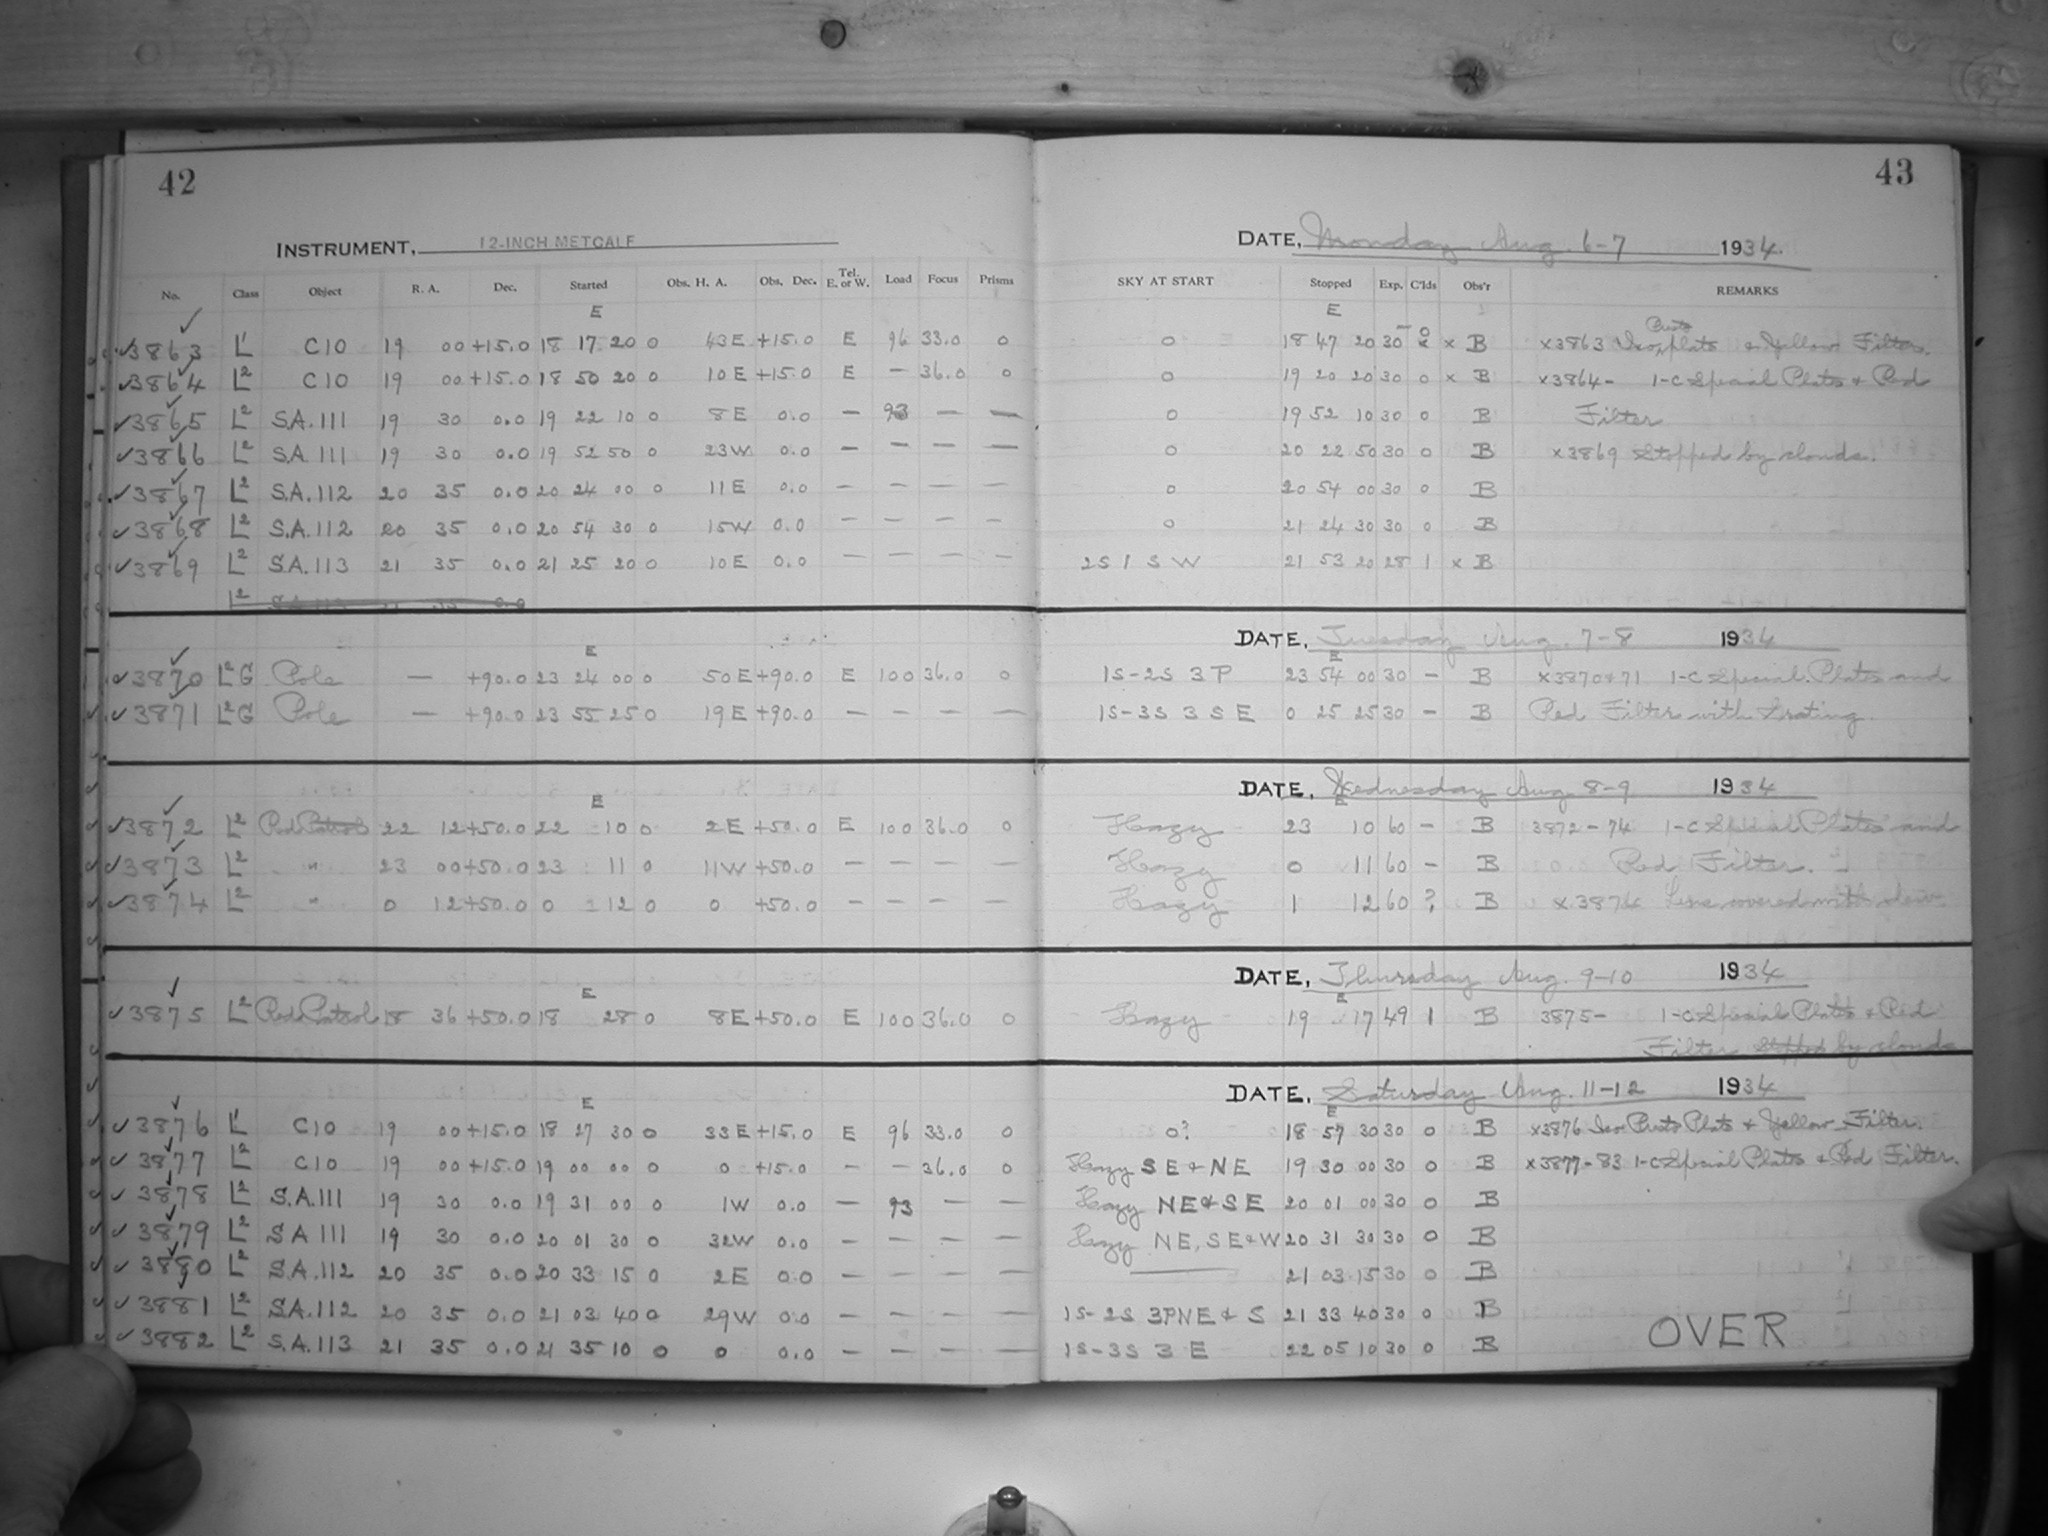 42
43
INSTRUMENT, 12-INCH METCALF
DATE, Monday Aug. 6-7 1934.
No. Class Object R. A. Dec. Started Obs. H. A. Obs. Dec. Tel. E. or W. Load Focus Prisms SKY AT START Stopped Exp. C'lds Obs'r REMARKS
E E
✓3863 L1 C10 19 00 +15.0 18 17 20 0 43E +15.0 E 96 33.0 0 0 18 47 20 30 x B x3863 Iso Plate & Yellow Filter.
✓3864 L2 C10 19 00 +15.0 18 50 20 0 10E +15.0 E — 36.0 0 0 19 20 20 30 0 x B x3864- 1-C Special Plates & Red
✓3865 L2 S.A.111 19 30 0.0 19 22 10 0 8E 0.0 — 93 — — 0 19 52 10 30 0 B Filter
✓3866 L2 S.A.111 19 30 0.0 19 52 50 0 23W 0.0 — — — — 0 20 22 50 30 0 B x3869 Stopped by clouds.
✓3867 L2 S.A.112 20 35 0.0 20 24 00 0 11E 0.0 — — — — 0 20 54 00 30 0 B
✓3868 L2 S.A.112 20 35 0.0 20 54 30 0 15W 0.0 — — — — 0 21 24 30 30 0 B
✓3869 L2 S.A.113 21 35 0.0 21 25 20 0 10E 0.0 — — — — 2S 1 S W 21 53 20 28 1 x B
L2 S.A.113 21 35 0.0
DATE, Tuesday Aug. 7-8 1934
E E
✓3870 L2G Pole — +90.0 23 24 00 0 50E +90.0 E 100 36.0 0 1S-2S 3 P 23 54 00 30 — B x3870&71 1-C Special Plates and
✓3871 L2G Pole — +90.0 23 55 25 0 19E +90.0 — — — — 1S-3S 3 S E 0 25 25 30 — B Red Filter with Grating.
DATE, Wednesday Aug. 8-9 1934
E E
✓3872 L2 Red Patrol 22 12 +50.0 22 10 0 2E +50.0 E 100 36.0 0 Hazy 23 10 60 — B 3872-74 1-C Special Plates and
✓3873 L2 " 23 00 +50.0 23 11 0 11W +50.0 — — — — Hazy 0 11 60 — B Red Filter.
✓3874 L2 " 0 12 +50.0 0 12 0 0 +50.0 — — — — Hazy 1 12 60 ? B x3874 Lens covered with dew.
DATE, Thursday Aug. 9-10 1934
E E
✓3875 L2 Red Patrol 18 36 +50.0 18 28 0 8E +50.0 E 100 36.0 0 Hazy 19 17 49 1 B 3875- 1-C Special Plates & Red
Filter Stopped by clouds
DATE, Saturday Aug. 11-12 1934
E E
✓3876 L1 C10 19 00 +15.0 18 27 30 0 33E +15.0 E 96 33.0 0 0? 18 57 30 30 0 B x3876 Iso Presto Plate & Yellow Filter.
✓3877 L2 C10 19 00 +15.0 19 00 00 0 0 +15.0 — — 36.0 0 Hazy SE & NE 19 30 00 30 0 B x3877-83 1-C Special Plates & Red Filter.
✓3878 L2 S.A.111 19 30 0.0 19 31 00 0 1W 0.0 — 93 — — Hazy NE & SE 20 01 00 30 0 B
✓3879 L2 S A 111 19 30 0.0 20 01 30 0 32W 0.0 — — — — Hazy NE, SE & W 20 31 30 30 0 B
✓3880 L2 S.A.112 20 35 0.0 20 33 15 0 2E 0.0 — — — — — 21 03 15 30 0 B
✓3881 L2 S.A.112 20 35 0.0 21 03 40 0 29W 0.0 — — — — 1S-2S 3PNE & S 21 33 40 30 0 B
✓3882 L2 S.A.113 21 35 0.0 21 35 10 0 0 0.0 — — — — 1S-3S 3 E 22 05 10 30 0 B
OVER